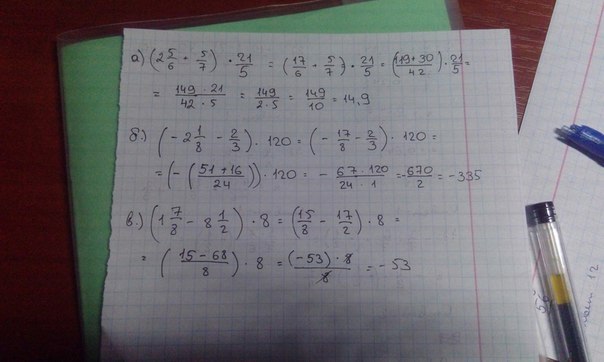 а) (2 5/6 + 5/7) · 21/5 = (17/6 + 5/7) · 21/5 = (119+30/42) · 21/5 =
= 149 · 21/42 · 5 = 149/2·5 = 149/10 = 14,9
б.) (- 2 1/8 - 2/3) · 120 = (- 17/8 - 2/3) · 120 =
= (- (51+16/24)) · 120 = - 67 · 120/24 · 1 = -670/2 = - 335
в.) (1 7/8 - 8 1/2) · 8 = (15/8 - 17/2) · 8 =
= (15 - 68/8) · 8 = (-53) · 8/8 = - 53